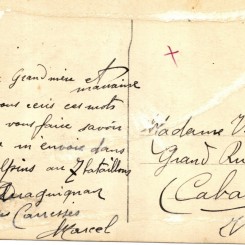 Grand mère et
marraine
vous écris ces mots
vous faire savoir
m envoie dans
Alpins au 7 bataillons
Draguignan
Caresses
Marcel
Madame V
Grand Ru
Caba